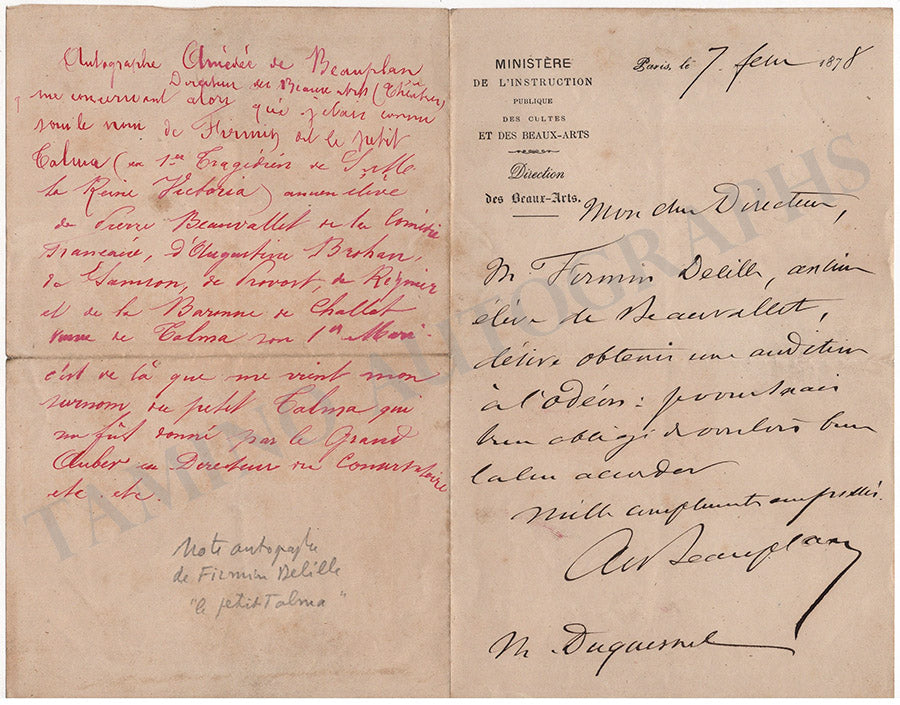 Autographe Amédée de Beauplan
Directeur des Beaux Arts (Théâtres)
me concernant alors que j'étais connu
sous le nom de Firmin dit le petit
Talma (ex 1er Tragédien de S. M.
la Reine Victoria) ancien élève
de Pierre Beauvallet de la Comédie
Française, d'Augustine Brohan,
de Samson, de Provost, de Régnier
et de la Baronne de Challot
veuve de Talma son 1er Mari
c'est de là que me vient mon
surnom du petit Talma qui
me fût donné par le Grand
Auber ex Directeur du Conservatoire
etc. etc.
Note autographe
de Firmin Delille
"le petit Talma"
MINISTÈRE
DE L'INSTRUCTION
PUBLIQUE
DES CULTES
ET DES BEAUX-ARTS
Direction
des Beaux-Arts.
Paris, le 7 fevr 1878
Mon cher Directeur,
M. Firmin Delille, ancien
élève de Beauvallet,
désire obtenir une audition
à l'Odéon : je vous serais
bien obligé de vouloir bien
la lui accorder
Mille compliments empressés.
A de Beauplan
M. Duquesnel
TAMINO AUTOGRAPHS